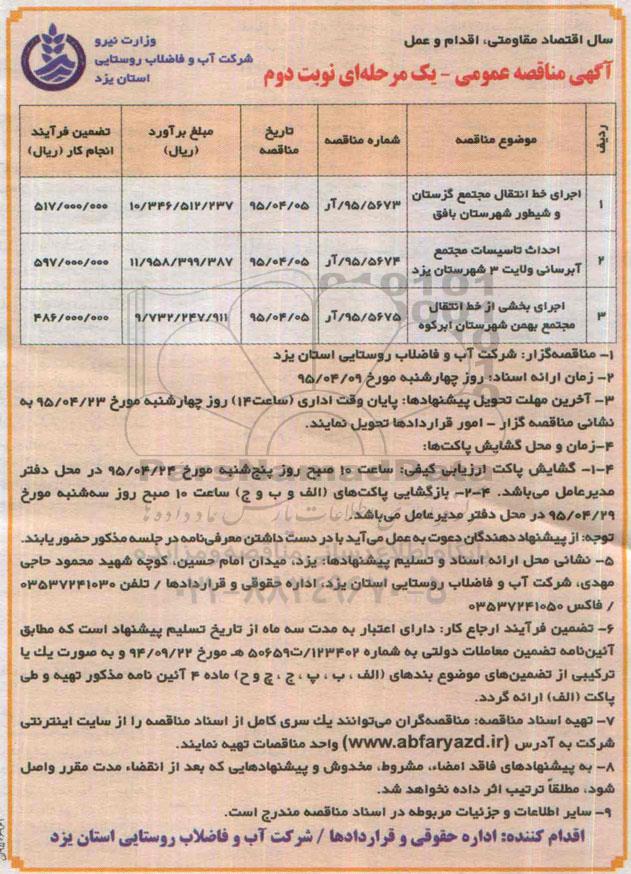 سال اقتصاد مقاومتی، اقدام و عمل
وزارت نیرو
شرکت آب و فاضلاب روستایی
استان یزد
آگهی مناقصه عمومی - یک مرحله‌ای نوبت دوم
ردیف | موضوع مناقصه | شماره مناقصه | تاریخ مناقصه | مبلغ برآورد (ریال) | تضمین فرآیند انجام کار (ریال)
۱ | اجرای خط انتقال مجتمع گزستان و شیطور شهرستان بافق | ۹۵/۵۶۷۳/آر | ۹۵/۰۴/۰۵ | ۱۰/۳۴۶/۵۱۲/۲۳۷ | ۵۱۷/۰۰۰/۰۰۰
۲ | احداث تاسیسات مجتمع آبرسانی ولایت ۳ شهرستان یزد | ۹۵/۵۶۷۴/آر | ۹۵/۰۴/۰۵ | ۱۱/۹۵۸/۳۹۹/۳۸۷ | ۵۹۷/۰۰۰/۰۰۰
۳ | اجرای بخشی از خط انتقال مجتمع بهمن شهرستان ابرکوه | ۹۵/۵۶۷۵/آر | ۹۵/۰۴/۰۵ | ۹/۷۳۲/۲۴۷/۹۱۱ | ۴۸۶/۰۰۰/۰۰۰
۱- مناقصه‌گزار: شرکت آب و فاضلاب روستایی استان یزد
۲- زمان ارائه اسناد: روز چهارشنبه مورخ ۹۵/۰۴/۰۹
۳- آخرین مهلت تحویل پیشنهادها: پایان وقت اداری (ساعت۱۴) روز چهارشنبه مورخ ۹۵/۰۴/۲۳ به
نشانی مناقصه گزار - امور قراردادها تحویل نمایند.
۴-زمان و محل گشایش پاکت‌ها:
۴-۱- گشایش پاکت ارزیابی کیفی: ساعت ۱۰ صبح روز پنج‌شنبه مورخ ۹۵/۰۴/۲۴ در محل دفتر
مدیرعامل می‌باشد. ۴-۲- بازگشایی پاکت‌های (الف و ب و ج) ساعت ۱۰ صبح روز سه‌شنبه مورخ
۹۵/۰۴/۲۹ در محل دفتر مدیرعامل می‌باشد.
توجه: از پیشنهاد دهندگان دعوت به عمل می‌آید با در دست داشتن معرفی‌نامه در جلسه مذکور حضور یابند.
۵- نشانی محل ارائه اسناد و تسلیم پیشنهادها: یزد، میدان امام حسین، کوچه شهید محمود حاجی
مهدی، شرکت آب و فاضلاب روستایی استان یزد، اداره حقوقی و قراردادها / تلفن ۰۳۵۳۷۲۴۱۰۳۰
/ فاکس ۰۳۵۳۷۲۴۱۰۵۰
۶- تضمین فرآیند ارجاع کار: دارای اعتبار به مدت سه ماه از تاریخ تسلیم پیشنهاد است که مطابق
آئین‌نامه تضمین معاملات دولتی به شماره ۱۲۳۴۰۲/ت۵۰۶۵۹ هـ مورخ ۹۴/۰۹/۲۲ و به صورت یك یا
ترکیبی از تضمین‌های موضوع بندهای (الف ، ب ، پ ، ج ، چ و ح) ماده ۴ آئین نامه مذکور تهیه و طی
پاکت (الف) ارائه گردد.
۷- تهیه اسناد مناقصه: مناقصه‌گران می‌توانند یك سری کامل از اسناد مناقصه را از سایت اینترنتی
شرکت به آدرس (www.abfaryazd.ir) واحد مناقصات تهیه نمایند.
۸- به پیشنهادهای فاقد امضاء، مشروط، مخدوش و پیشنهادهایی که بعد از انقضاء مدت مقرر واصل
شود، مطلقاً ترتیب اثر داده نخواهد شد.
۹- سایر اطلاعات و جزئیات مربوطه در اسناد مناقصه مندرج است.
اقدام کننده: اداره حقوقی و قراردادها / شرکت آب و فاضلاب روستایی استان یزد